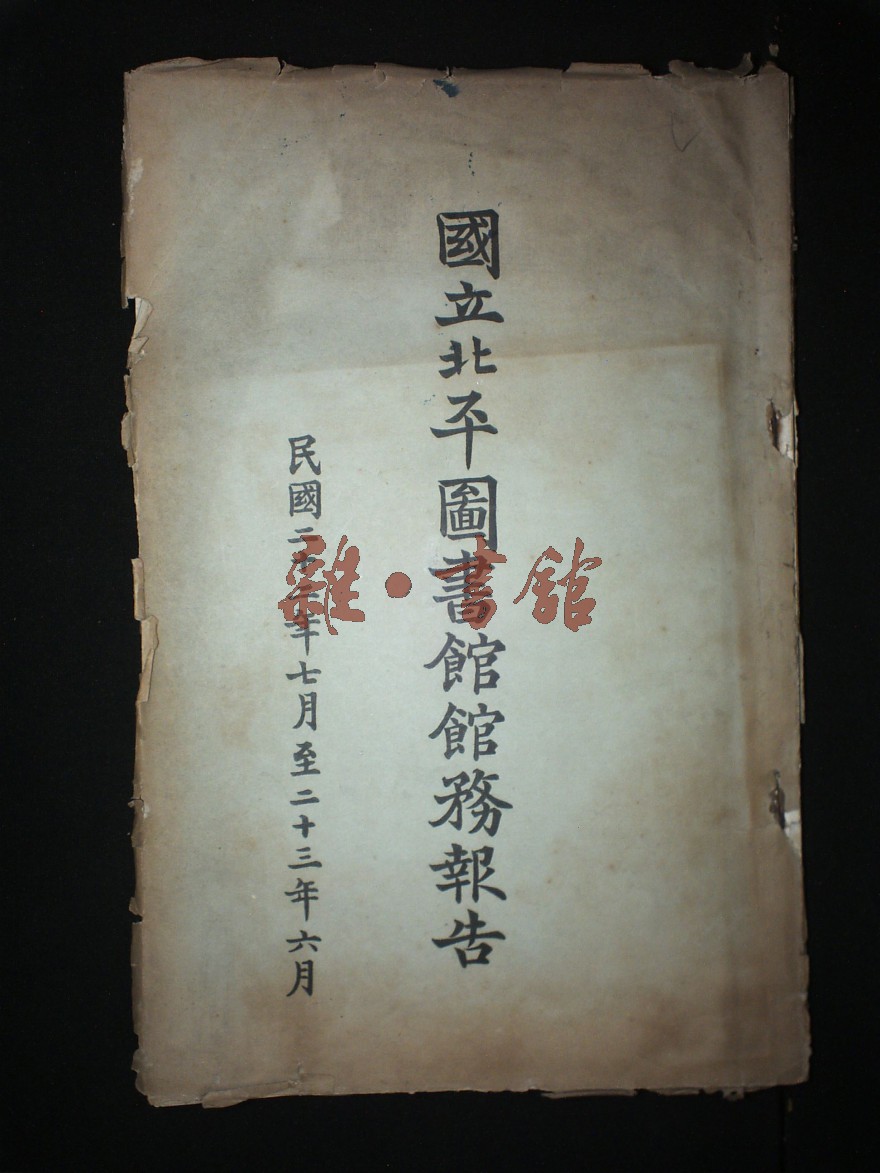 國立北平圖書館館務報告
民國二十二年七月至二十三年六月
雜·書館